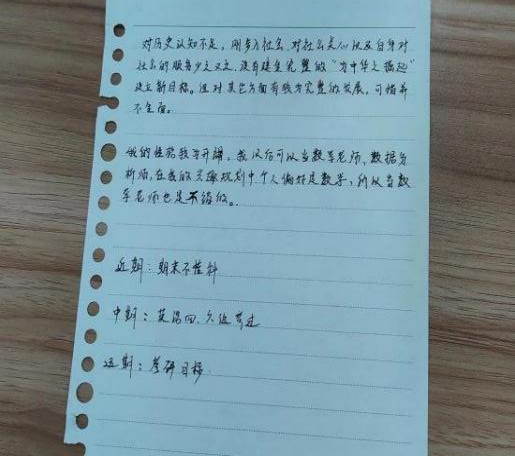 对历史认知不足,刚步入社会,对社会关心以及自身对
社会的服务少之又少,没有建立完整的“为中华之崛起”
建立新目标。但对其它方面有较为完整的发展,可惜并
不全面。
我的性格较为开朗,我以后可以当数学老师,数据分
析师,在我的规划中个人偏好是数学,所以当数
学老师也是不错的。
近期:期末不挂科
中期:英语四、六级考过
远期:考研目标